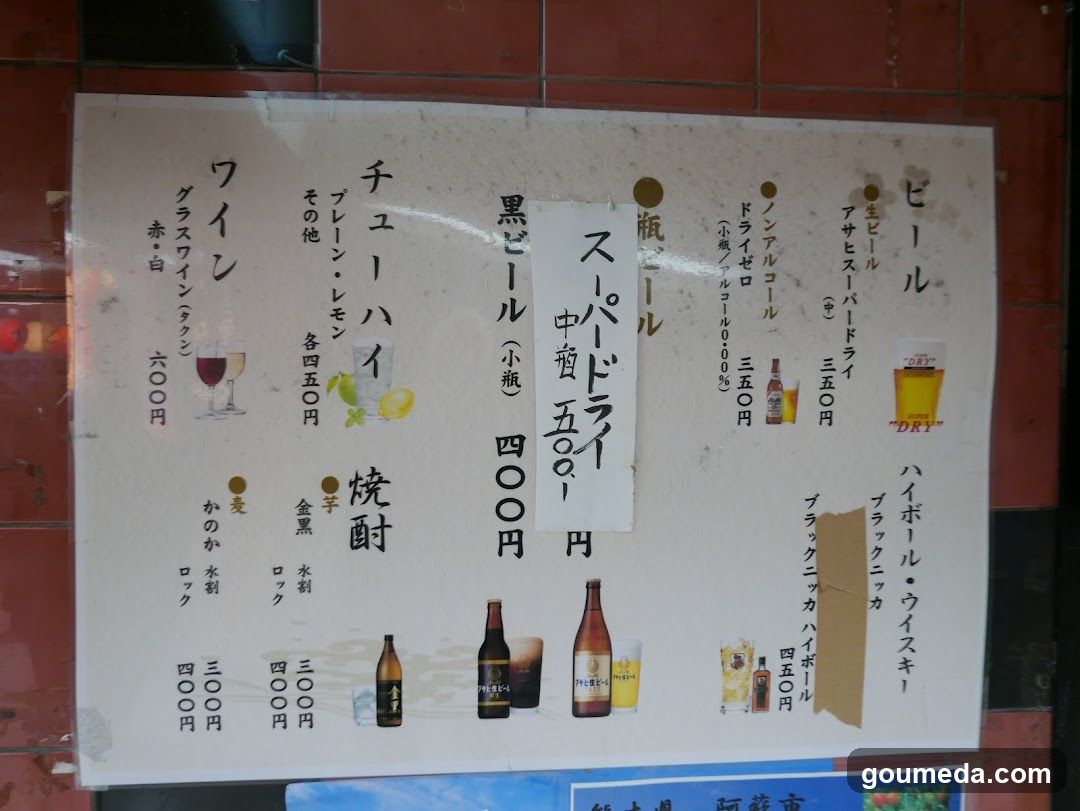 ビール
●生ビール
アサヒスーパードライ
(中) 三五〇円
●ノンアルコール
ドライゼロ 三五〇円
(小瓶/アルコール0.00%)
●瓶ビール
スーパードライ
中瓶 五〇〇.-
円
黒ビール (小瓶) 四〇〇円
チューハイ
プレーン・レモン
その他 各四五〇円
ワイン
グラスワイン(タクン)
赤・白 六〇〇円
ハイボール・ウイスキー
ブラックニッカ
ブラックニッカ ハイボール
四五〇円
焼酎
●芋
金黒 水割 三〇〇円
ロック 四〇〇円
●麦
かのか 水割 三〇〇円
ロック 四〇〇円
SUPER
"DRY"
SUPER
"DRY"
アサヒ生ビール
アサヒ生ビール
金黒
熊本県 阿蘇市
goumeda.com